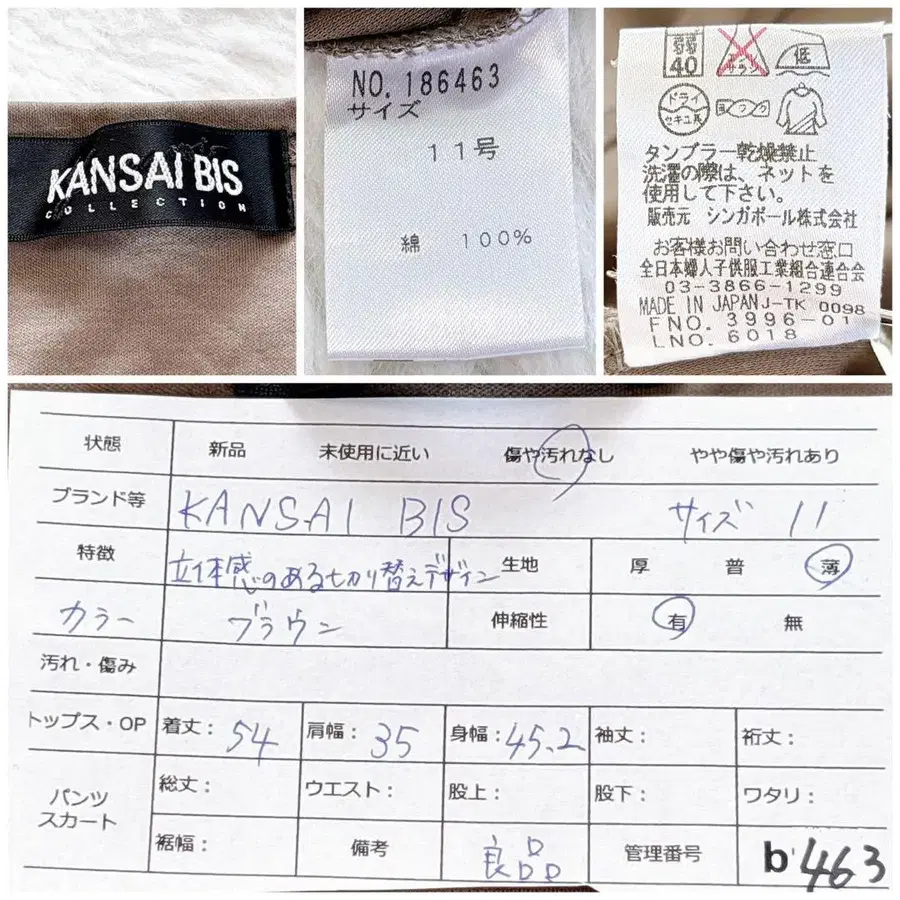 KANSAI BIS
COLLECTION
NO.186463
サイズ
11号
綿 100%
弱
40
低
ドライ
セキユ系
タンブラー乾燥禁止
洗濯の際は、ネットを
使用して下さい。
販売元 シンガポール株式会社
お客様お問い合わせ窓口
全日本婦人子供服工業組合連合会
03-3866-1299
MADE IN JAPAN J-TK 0098
FNO. 3996-01
LNO. 6018
状態 新品 未使用に近い 傷や汚れなし やや傷や汚れあり
ブランド等 KANSAI BIS サイズ 11
特徴 立体感のある切り替えデザイン 生地 厚 普 薄
カラー ブラウン 伸縮性 有 無
汚れ・傷み
トップス・OP 着丈: 54 肩幅: 35 身幅: 45.2 袖丈: 裄丈:
パンツ スカート 総丈: ウエスト: 股上: 股下: ワタリ:
裾幅: 備考 良品 管理番号 b 463